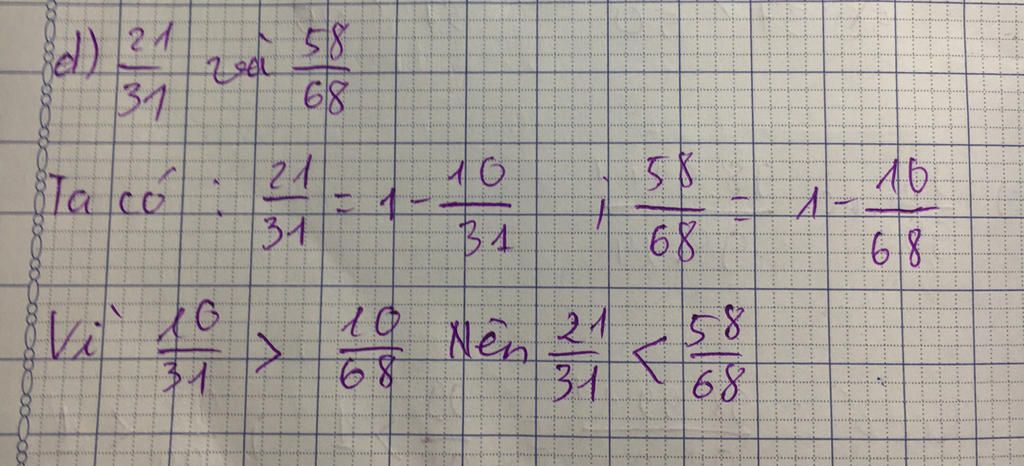 d) 21/31 và 58/68
Ta có : 21/31 = 1 - 10/31 ; 58/68 = 1 - 10/68
Vì 10/31 > 10/68 Nên 21/31 < 58/68